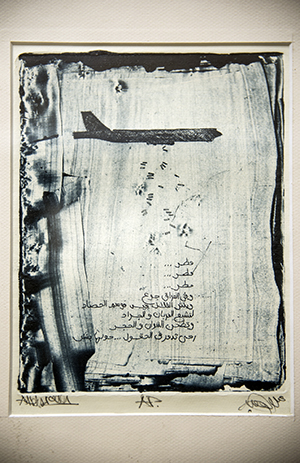 مطر ...
مطر ...
مطر ...
وفي العراق جوع
وينثر الغلال فيه موسم الحصاد
لتشبع الغربان و الجراد
وتطحن الشوان و الحجر
رحى تدور في الحقول ... حولها بشر
A.P.